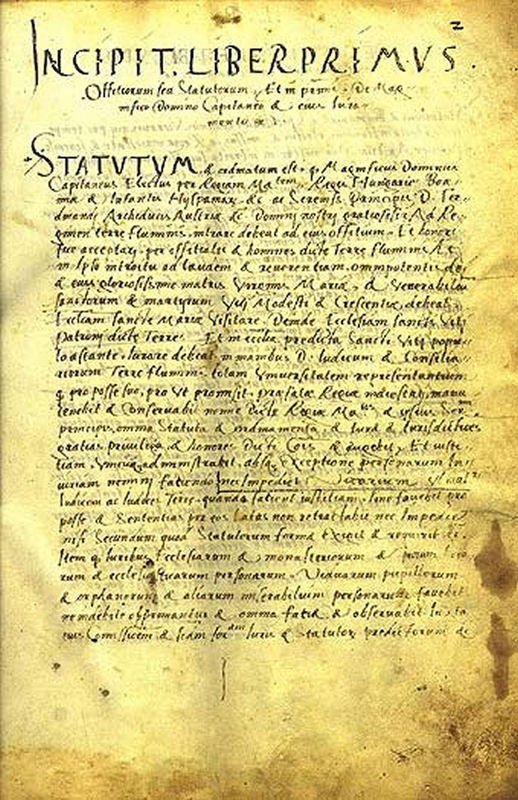 2
INCIPIT. LIBER PRIMVS.
Offitiorum seu Statutorum, Et in primis De Mag
nifico Domino Capitaneo & eius Iura
mento
STATVTVM & ordinatum est q. Magnificus Dominus
Capitaneus Electus per Regiam Ma.tem Regis Hungarie Boe
mie & Infantis Hyspaniar. &c ac Sereniss. Principis D. Fer
dinandi Archiducis Austrie &c Domini nostri gratiosissi Ad Re
gimen terre fluminis. intrare debeat ad eius offitium. Et honori
fice acceptari. per offitiales & homines dicte Terre fluminis Et
in ipso introitu ad laudem & reverentiam. omnipotentis dei
& eius gloriosissime matris Virginis Marie, & Venerabiliu
sanctorum & martyrum Viti Modesti & Crescentie, debeat
Ecclesiam Sancte Marie Visitare. Deinde Ecclesiam Sancti Viti
Patroni dicte Terre. Et in ecclia predicta Sancti Viti popu
lo astante. Iurare debeat in manibus D. Iudicum & Consilia
riorum Terre fluminis. totam Vniversitatem representantium
q. pro posse suo, pro Vt promisit. prefate Regie maiestati, manu
tenebit & Conservabit nomine dicte Regie Ma.tis
omnia Statuta & ordinamenta, & Iura & Iurisdictiones
gratias privilegia & honores Dicte Cois & Et iusti
tiam, Vnicuiq. administrabit, absq. Exceptione personarum Iniu
uriam nemini faciendo nec Impediet Vicarium
Iudicem ac Iudices Terre. quando facient iustitiam. Imo favebit pro
posse & Sententias per eos Latas non retractabit nec Impediet
nisi Secundum quod Statutorum forma exigit & requirit &c.
Item q. Iuribus Ecclesiarum & monasteriorum &
rum & ecclesiasticarum personarum. Viduarum pupillorum
& orphanorum & aliarum miserabilium personarum favebit
ne indebite opprimantur & omnia faciet & observabit Iuxta
eius Comissionem & Iuris & statutor. predictorum &c